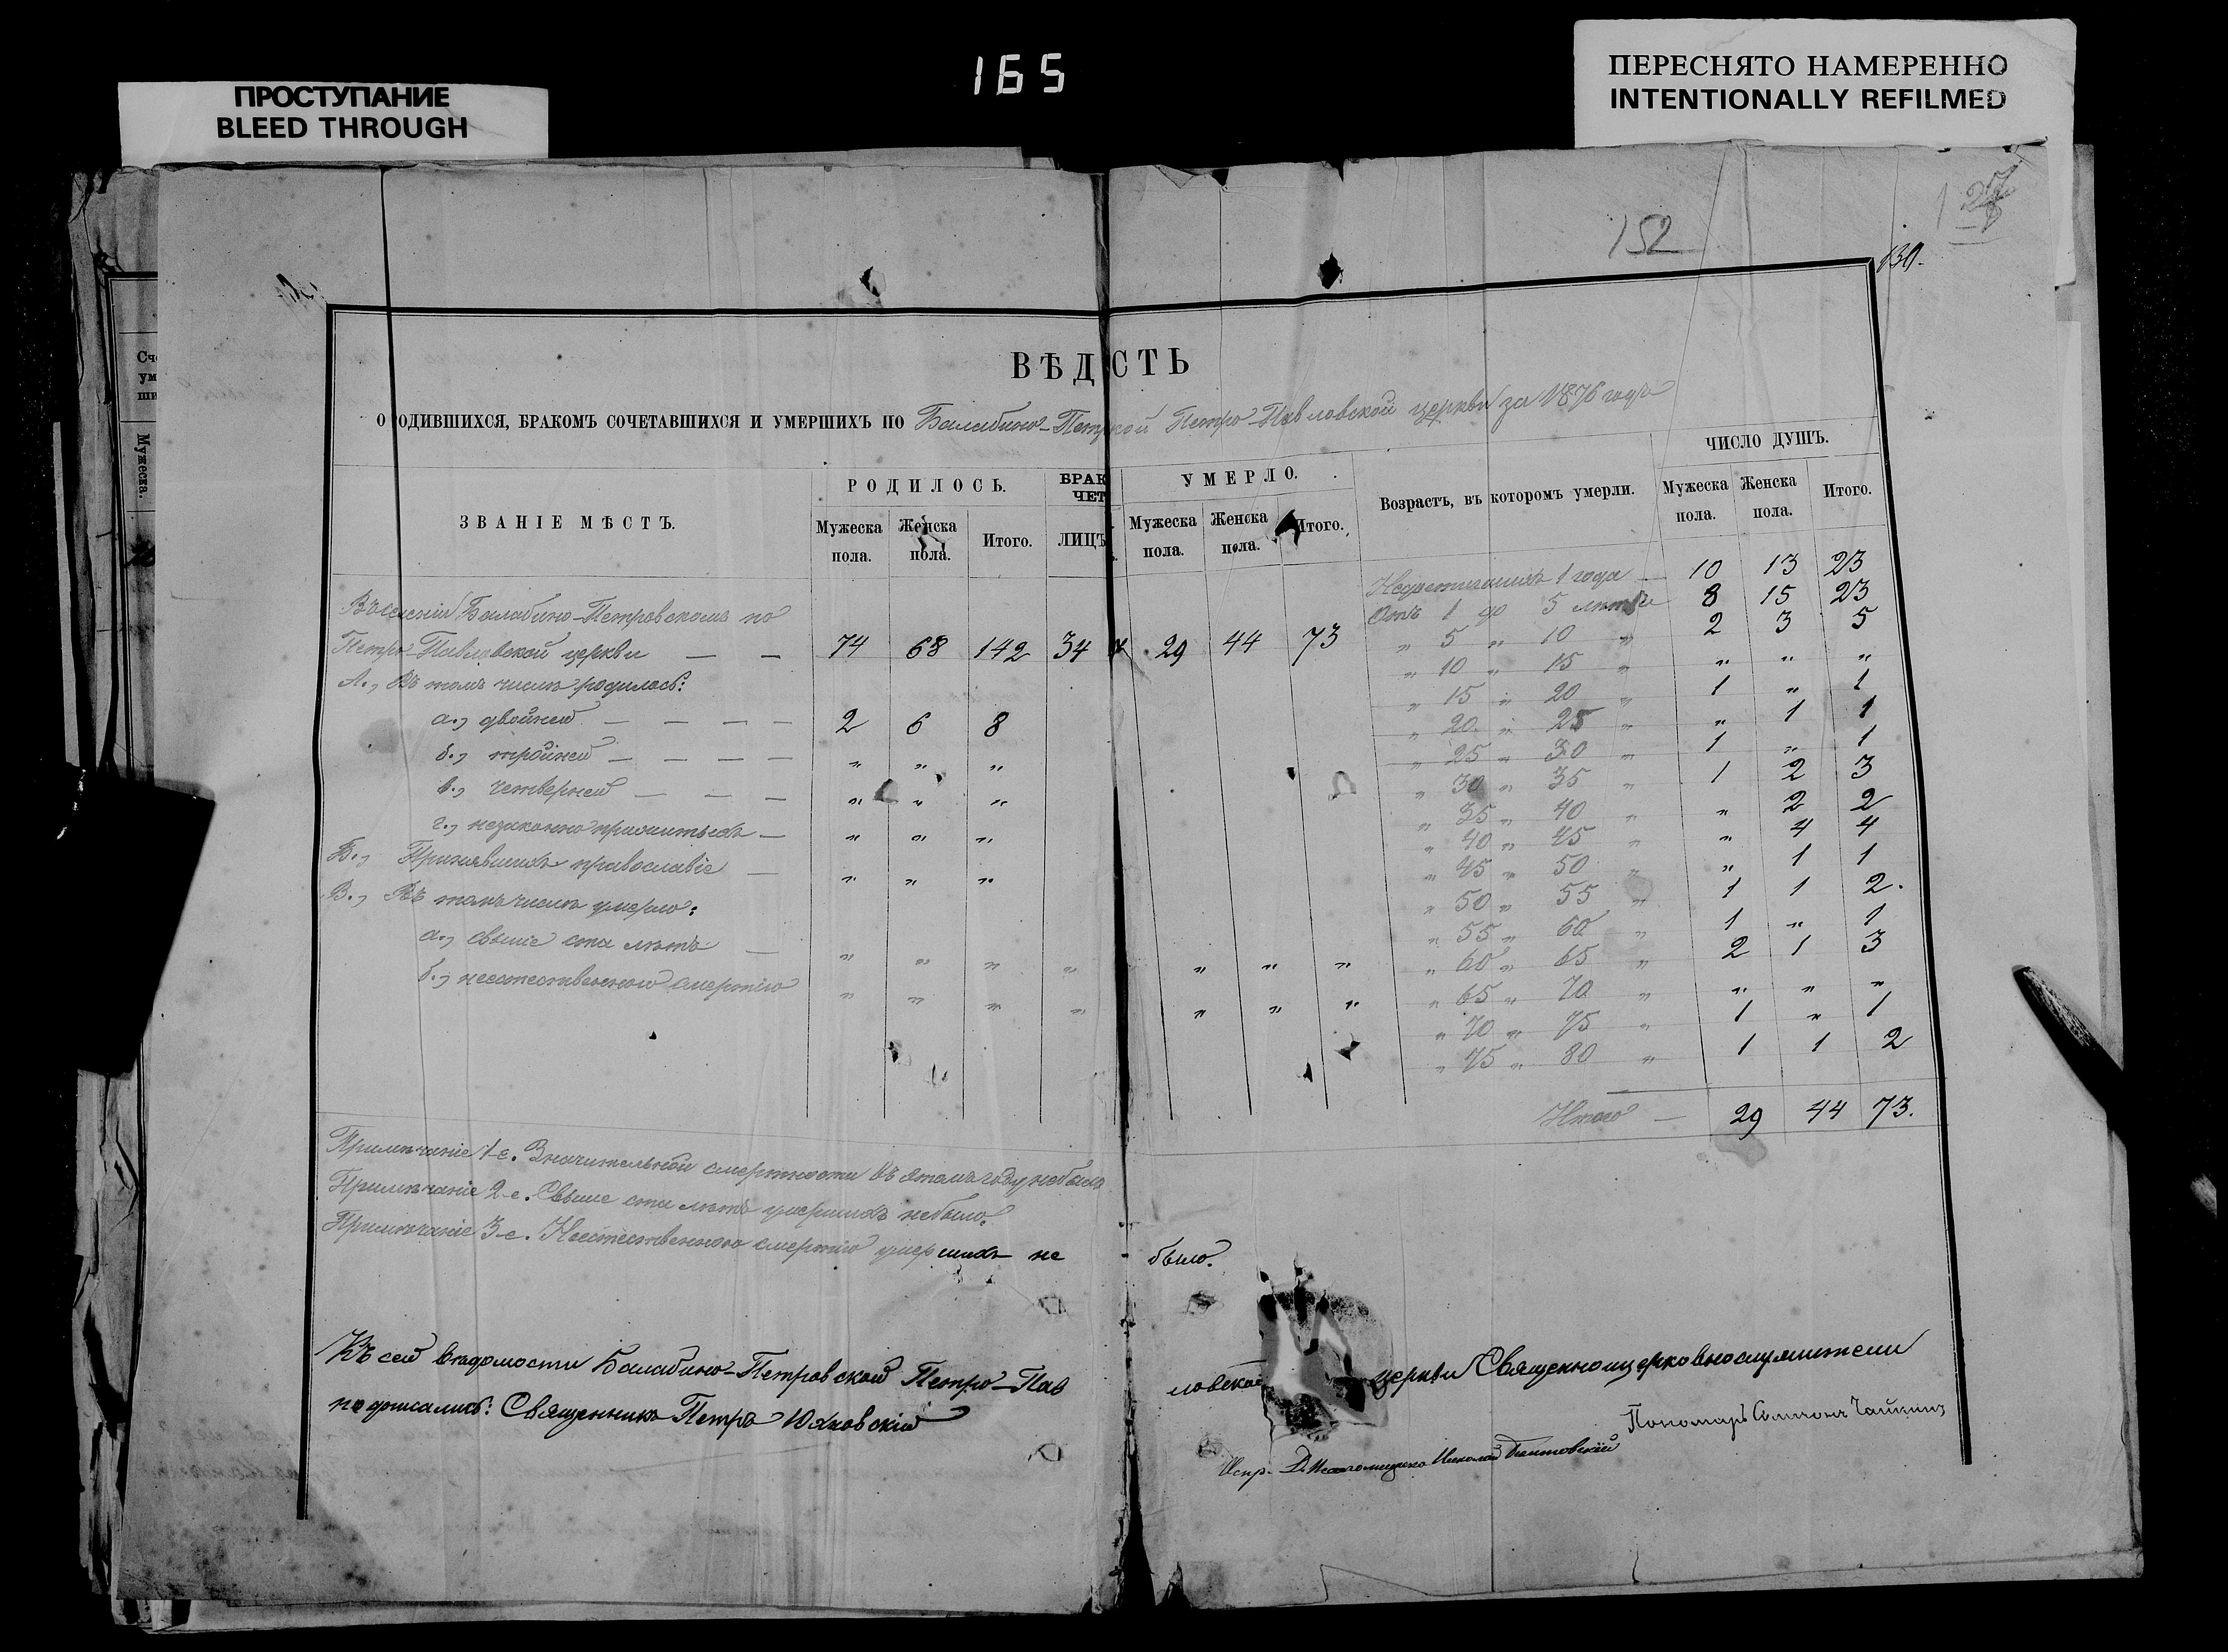 165
ПРОСТУПАНИЕ
BLEED THROUGH
ПЕРЕСНЯТО НАМЕРЕННО
INTENTIONALLY REFILMED
152
130.
ВѢДСТЬ
О ОДИВШИХСЯ, БРАКОМЪ СОЧЕТАВШИХСЯ И УМЕРШИХЪ ПО Балабино-Петркой Петро-Павловской церкви за 1876 годъ
ЗВАНІЕ МѢСТЪ. РОДИЛОСЬ. БРАК ЧЕТ УМЕРЛО. Возрастъ, въ которомъ умерли. ЧИСЛО ДУШЪ.
Мужеска пола. Женска пола. Итого. ЛИЦЪ Мужеска пола. Женска пола. Итого. Мужеска пола. Женска пола. Итого.
Въ селеніи Балабино-Петровскомъ по
Петро-Павловской церкви — — 74 68 142 34 29 44 73
А., Въ томъ числѣ родилось:
а., двойней — — — — 2 6 8
б., тройней — — — — " " "
в., четверней — — — " " "
г., незаконно прижитыхъ — " " "
Б., Принявшихъ православіе — " " "
В., Въ томъ числѣ умерло:
а., свыше ста лѣтъ — " " " " " " "
б., неестественною смертію " " " " " " "
Недостигшихъ 1 года — 10 13 23
Отъ 1 до 5 лѣтъ 8 15 23
" 5 " 10 " 2 3 5
" 10 " 15 " " " "
" 15 " 20 " 1 " 1
" 20 " 25 " " 1 1
" 25 " 30 " 1 " 1
" 30 " 35 " 1 2 3
" 35 " 40 " " 2 2
" 40 " 45 " " 4 4
" 45 " 50 " " 1 1
" 50 " 55 " 1 1 2.
" 55 " 60 " 1 " 1
" 60 " 65 " 2 1 3
" 65 " 70 " " " "
" 70 " 75 " 1 " 1
" 75 " 80 " 1 1 2
Итого — 29 44 73.
Примѣчаніе 1-е. Значительной смертности въ этомъ году небыло
Примѣчаніе 2-е. Свыше ста лѣтъ умершихъ небыло.
Примѣчаніе 3-е. Неестественною смертію умершихъ не было.
Къ сей вѣдомости Балабино-Петровской Петро-Павловской церкви Священноцерковнослужители
подписались: Священникъ Петръ Юхновскій
Пономарь Симеонъ
Испр. Д. Псаломщика Николай
Сч
ум
ши
Мужеска.